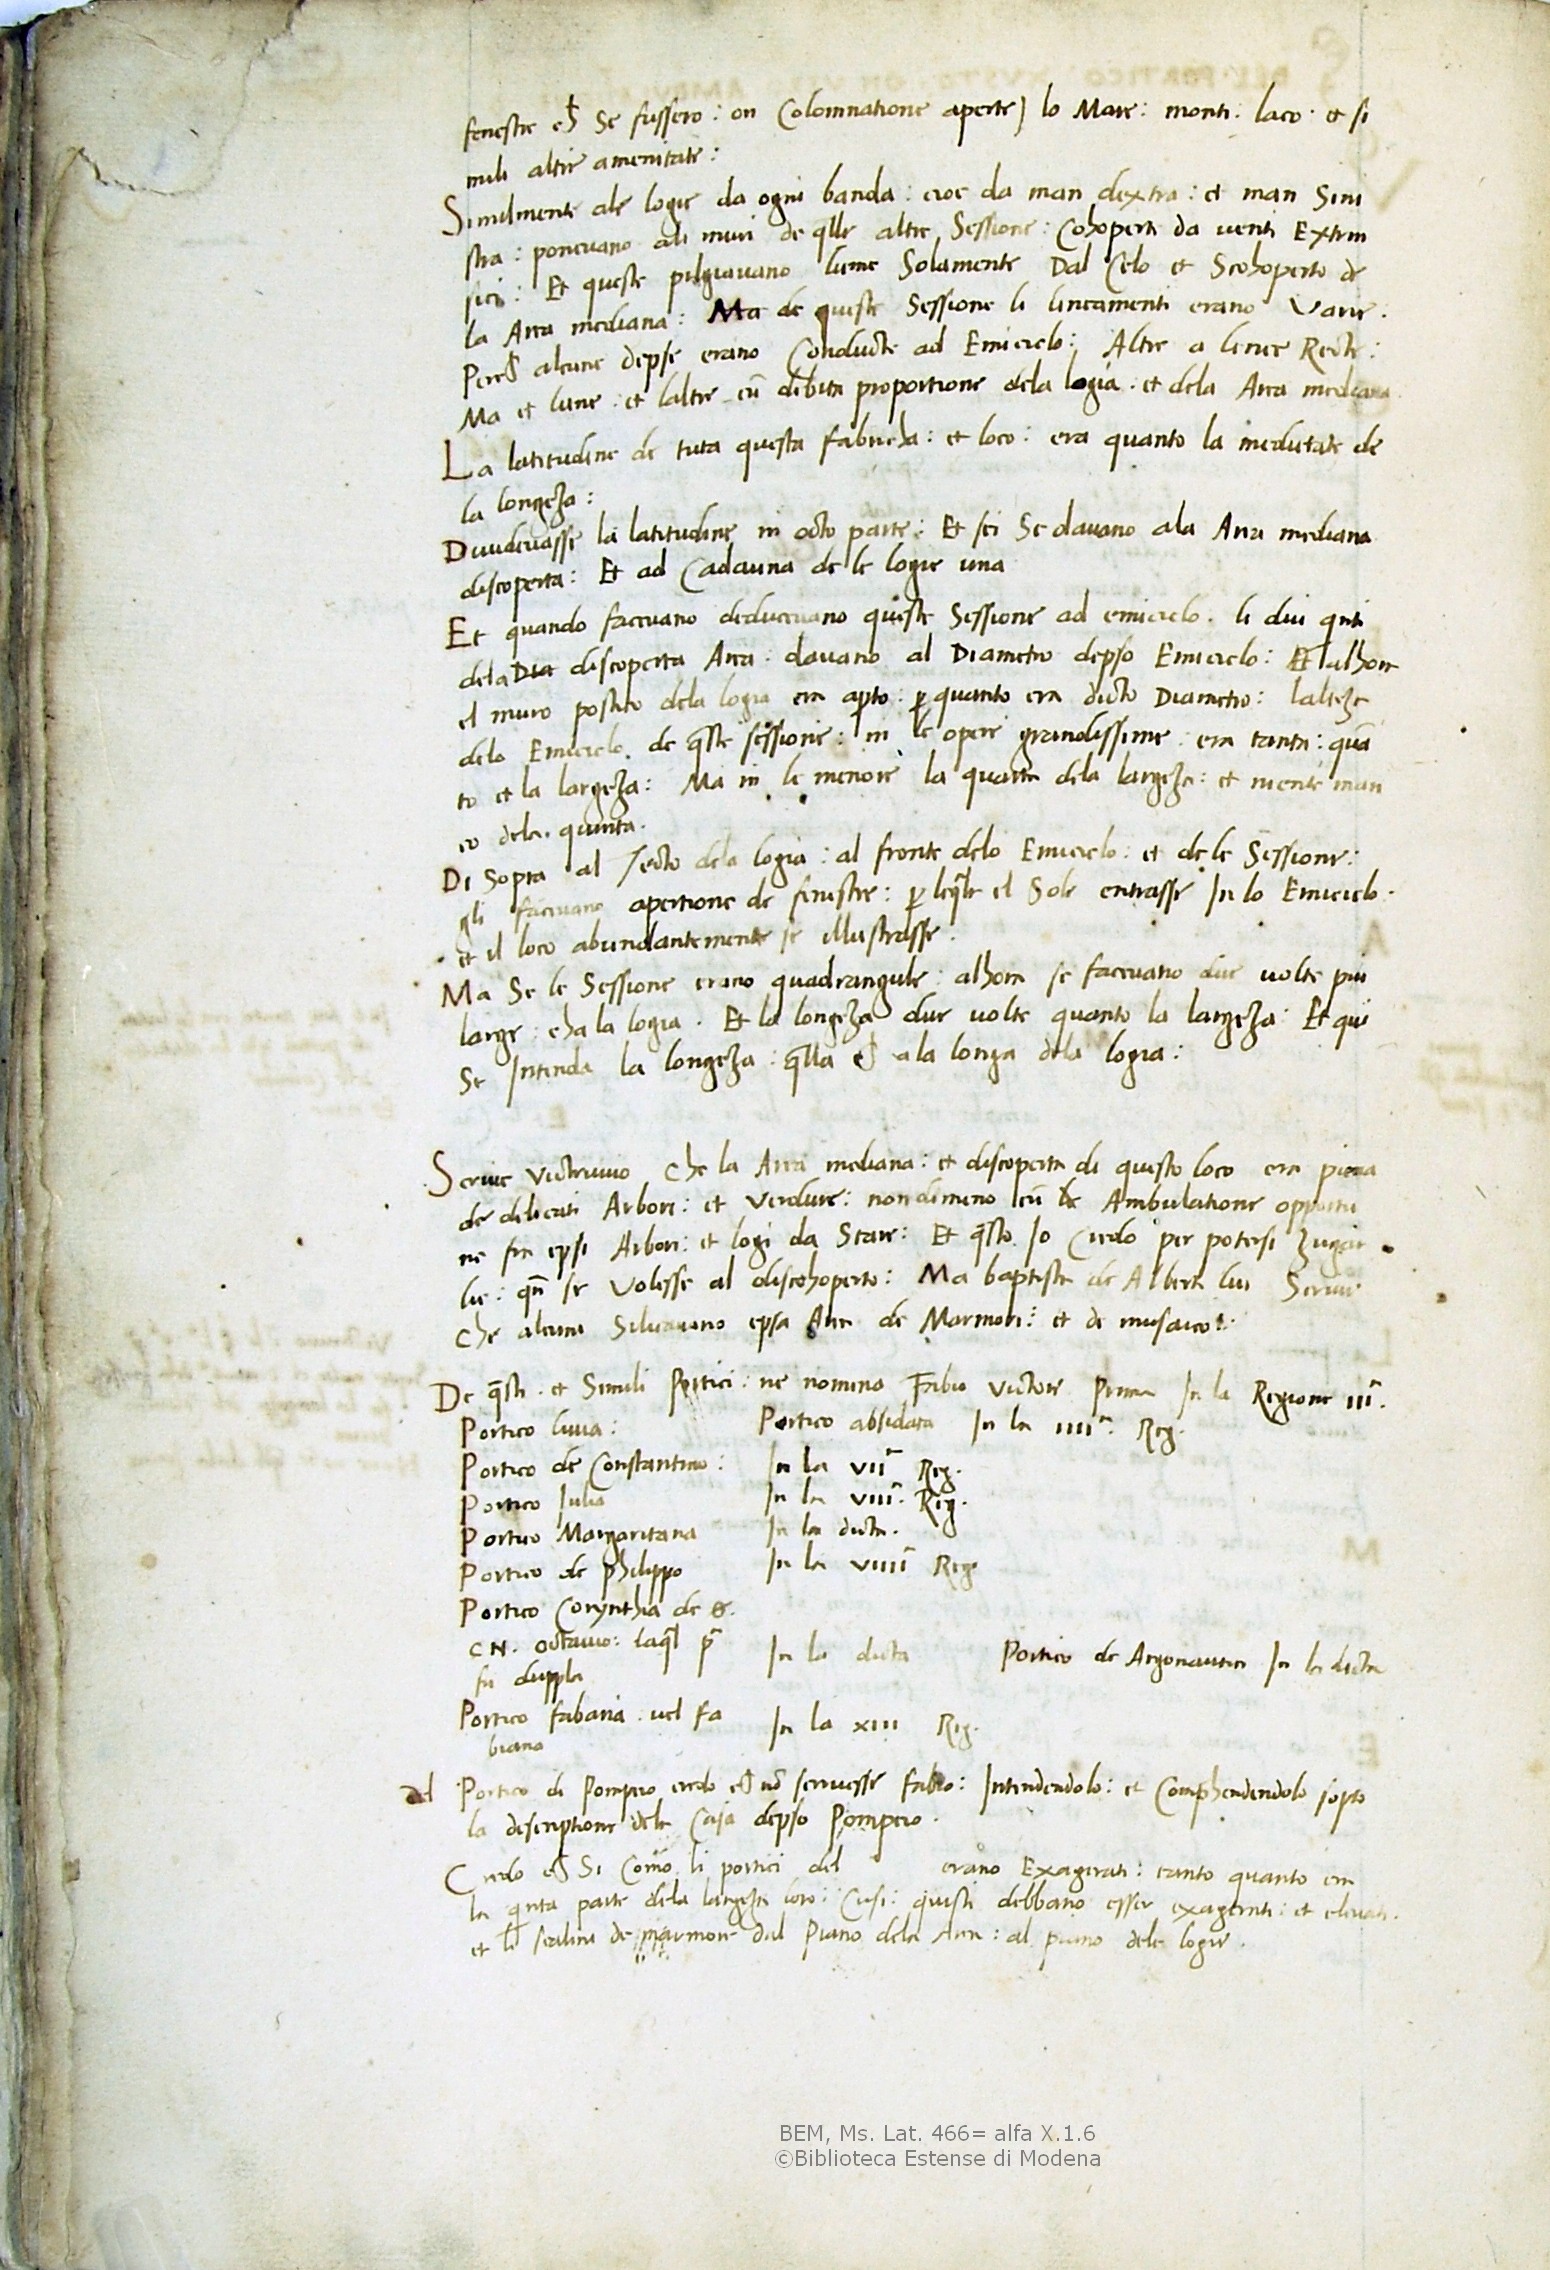 fenestre ch̄ Se fussero : on Colomnatione aperte) lo Mare : monti : laco · et si
mili altre amenitate :
Similmente ale logie da ogni banda : cioe da man dextra : et man Sini
stra : ponevano ali muri de q̄lle altre Sessione : Cohoperte da venti Extrin
sici : Et queste pilgiavano lume Solamente Dal Celo et Scohoperto de
la Area mediana : Ma de queste Sessione li lineamenti erano Varie .
Perch̄ alcune depse erano Conducte ad Emiciclo : Altre a linee Recte :
Ma et lune . et laltre cū debita proportione dela logia . et dela Area mediana .
La latitudine de tuta questa fabricha : et loco : era quanto la medietate de
la longeza :
Divudevasse la latitudine in octo parte : Et sei Se davano ala Area mediana
discoperta : Et ad Cadauna de le logie una
Et quando facevano deducevano queste Sessione ad emiciclo . li dui qnti
dela Dta discoperta Area . davano al Diametro depso Emiciclo : Et alhora
el muro postico dela logia era apto : p quanto era dicto Diametro : lalteza
delo Emiciclo . de q̄ste sessione : in le opere grandissime : era tanta : quā
to et la largeza : Ma in le menore la quarta dela largeza : et niente man
co dela quinta .
Di Sopra al Tecto dela logia : al fronte delo Emiciclo : et de le Sessione :
gli facevano apertione de finestre : p leq̄le el Sole entrasse In lo Emiciclo .
et il loco abundantemente se illustrasse .
Ma Se le Sessione erano quadrangule : alhora se facevano due volte piu
large : cha la logia . Et la longeza due volte quanto la largeza : Et qui
Se Intenda la longeza : q̄lla ch̄ ala longa dela logia :
Scrive Victruvio Che la Area mediana : et discoperta di questo loco era piena
de delicati Arbori : et Verdure : nondimeno cū le Ambulatione opportu
ne fra epsi Arbori : et logi da Stare : Et q̄sto Io Credo per potersi
lie : qn̄ se Volesse al discohoperto : Ma baptista de Alberti lui Scrive
Che alcuni Silicavano epsa Area de Marmori : et de musaico :
De q̄sti . et Simili Portici : ne nomina Fabio Victore Prima In la Regione III.
Portico livia : Portico absidata In la IIII . Reg .
Portico de Constantino : In la VII Reg .
Portico Iulia In la VIII . Reg .
Portico Margaritana In la dicta .
Portico de philippo In la VIIII Reg
Portico Corynthia de
CN . Octavio : laq̄l p In la dicta Portico de Argonautica In la dicta
fu duppla
Portico fabaria . vel fa In la XIII Reg .
biana
del Portico di Pompeo credo ch̄ nō scrivesse fabio : Intendendolo : et Comphendendolo sopto
la descriptione dela Casa depso Pompeo .
Credo ch̄ Si Como li portici del erano Exagerati : tanto quanto era
la qnta parte dela largeza loro : Cusi : questi debbano esser exagerati : et elevati .
et li scalini de marmore dal Piano dela Area : al piano dele logie .
BEM, Ms. Lat. 466= alfa X.1.6
©Biblioteca Estense di Modena